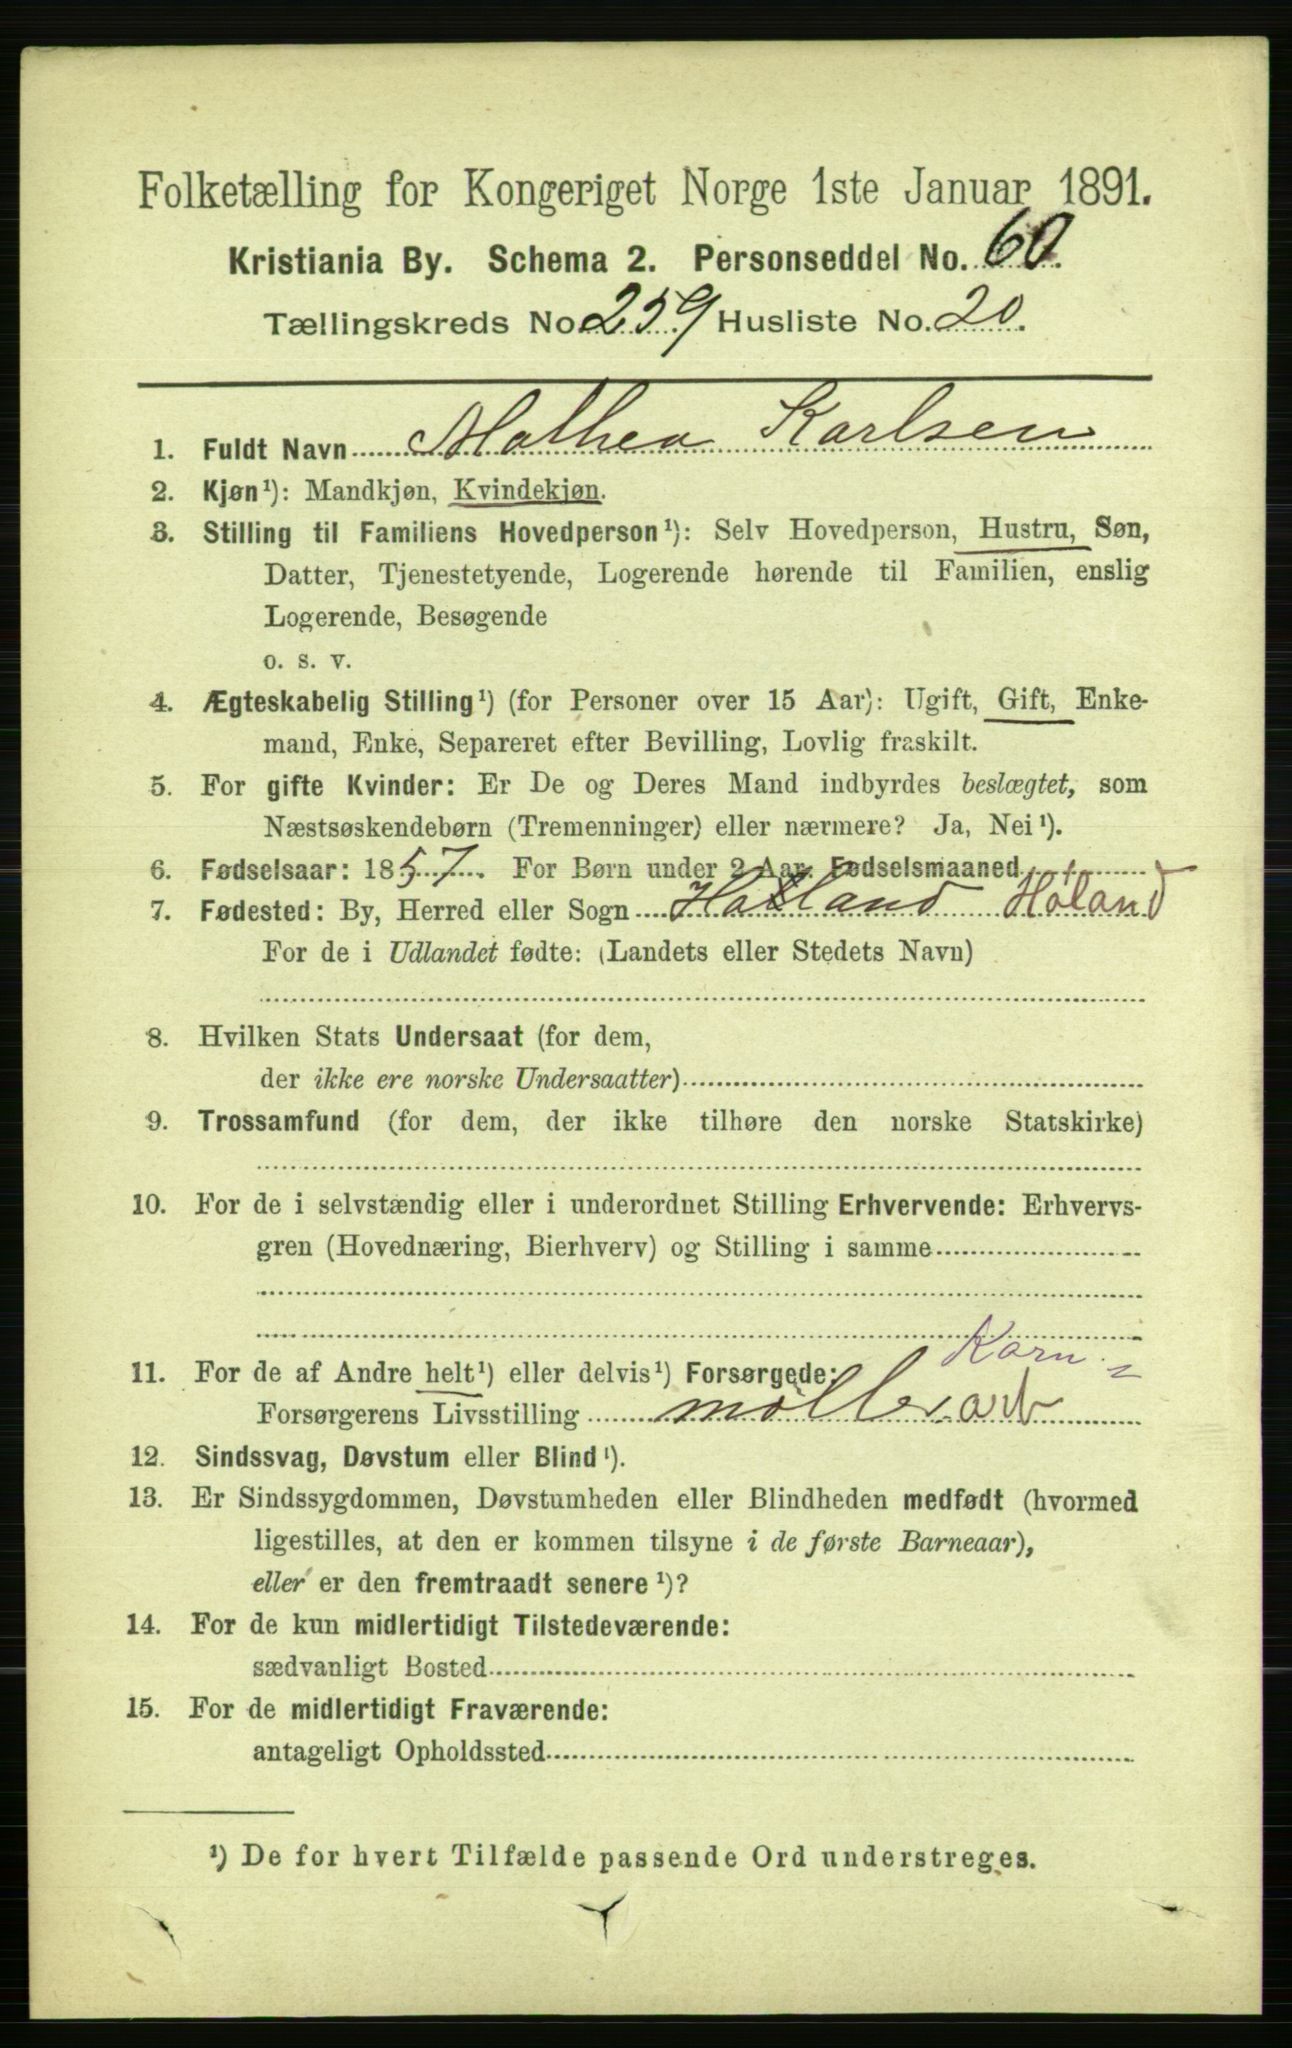 Folketælling for Kongeriget Norge 1ste Januar 1891.
Kristiania By. Schema 2. Personseddel No. 60.
Tællingskreds No. 259 Husliste No. 20.
1. Fuldt Navn Mathea Karlsen
2. Kjøn¹): Mandkjøn, Kvindekjøn.
3. Stilling til Familiens Hovedperson¹): Selv Hovedperson, Hustru, Søn,
Datter, Tjenestetyende, Logerende hørende til Familien, enslig
Logerende, Besøgende
o. s. v.
4. Ægteskabelig Stilling¹) (for Personer over 15 Aar): Ugift, Gift, Enke-
mand, Enke, Separeret efter Bevilling, Lovlig fraskilt.
5. For gifte Kvinder: Er De og Deres Mand indbyrdes beslægtet, som
Næstsøskendebørn (Tremenninger) eller nærmere? Ja, Nei¹).
6. Fødselsaar: 1857. For Børn under 2 Aar, Fødselsmaaned
7. Fødested: By, Herred eller Sogn Høland
For de i Udlandet fødte: (Landets eller Stedets Navn)
8. Hvilken Stats Undersaat (for dem,
der ikke ere norske Undersaatter)
9. Trossamfund (for dem, der ikke tilhøre den norske Statskirke)
10. For de i selvstændig eller i underordnet Stilling Erhvervende: Erhvervs-
gren (Hovednæring, Bierhverv) og Stilling i samme
Korn-
11. For de af Andre helt¹) eller delvis¹) Forsørgede:
Forsørgerens Livsstilling møllerarb
12. Sindssvag, Døvstum eller Blind¹).
13. Er Sindssygdommen, Døvstumheden eller Blindheden medfødt (hvormed
ligestilles, at den er kommen tilsyne i de første Barneaar),
eller er den fremtraadt senere¹)?
14. For de kun midlertidigt Tilstedeværende:
sædvanligt Bosted
15. For de midlertidigt Fraværende:
antageligt Opholdssted
¹) De for hvert Tilfælde passende Ord understreges.